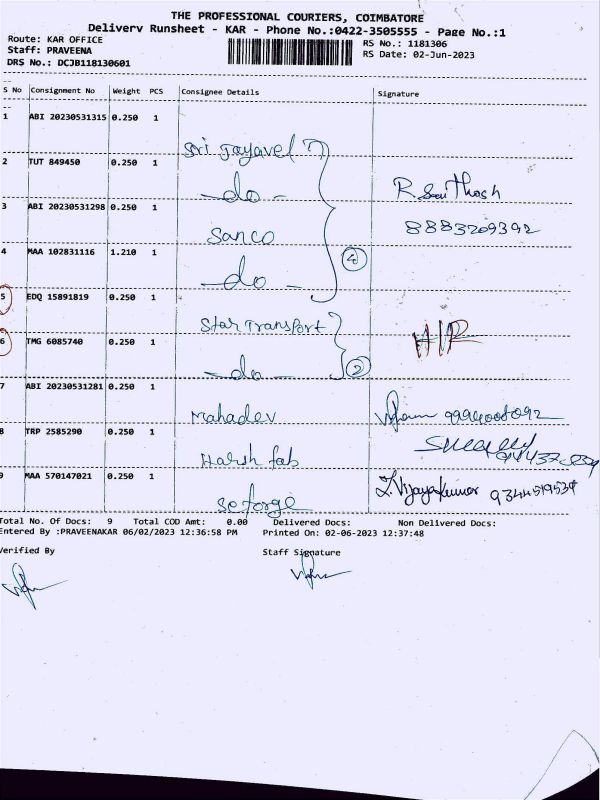 THE PROFESSIONAL COURIERS, COIMBATORE
Delivery Runsheet - KAR - Phone No.:0422-3505555 - Page No.:1
Route: KAR OFFICE
RS No.: 1181306
Staff: PRAVEENA
RS Date: 02-Jun-2023
DRS No.: DCJB118130601
S No Consignment No Weight PCS Consignee Details Signature
1 ABI 20230531315 0.250 1 Sri Jayavel
2 TUT 849450 0.250 1 -do-
R. Santhosh
3 ABI 20230531298 0.250 1 Sanco
8883209392
4 MAA 102831116 1.210 1 -do- 4
5 EDQ 15891819 0.250 1 Star Transport
6 TMG 6085740 0.250 1 -do- 2
7 ABI 20230531281 0.250 1 Mahadev
8 TRP 2585290 0.250 1 Harsh fab
9 MAA 570147021 0.250 1 Seforge
Z. Vijayakumar 9344519534
Total No. Of Docs: 9 Total COD Amt: 0.00 Delivered Docs: Non Delivered Docs:
Entered By :PRAVEENAKAR 06/02/2023 12:36:58 PM Printed On: 02-06-2023 12:37:48
Verified By Staff Signature